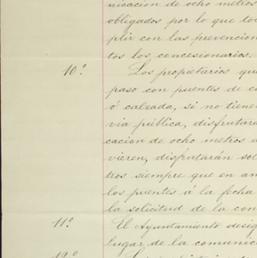 nicacion de ocho metros
obligados por lo que to
plir con las prevencion
tos los concesionarios.
10º Los propietarios qu
paso con puentes de c
ó calzada, si no tiene
via pública, disfrutará
cacion de ocho metros
vieren, disfrutarán sol
tros siempre que en an
los puentes á la fecha
la solicitud de la con
11º El Ayuntamiento desig
lugar de la comunic